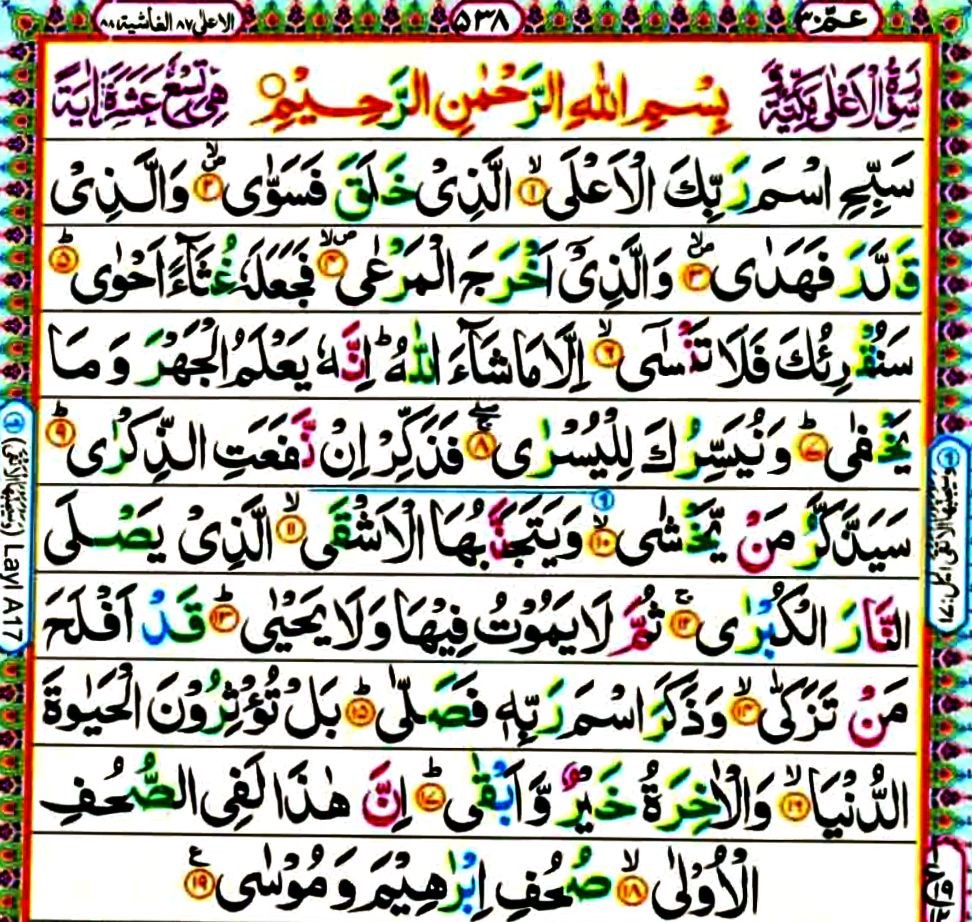 عمّ ٣٠
٥٣٨
الاعلى ٨٧ الغاشية ٨٨
سُوْرَةُ الْاَعْلٰى مَكِّيَّةٌ
بِسْمِ اللهِ الرَّحْمٰنِ الرَّحِيْمِ
هِيَ تِسْعَ عَشَرَةَ اٰيَةً
سَبِّحِ اسْمَ رَبِّكَ الْاَعْلَى ۙ﴿١﴾ الَّذِىْ خَلَقَ فَسَوّٰى ۙ﴿٢﴾ وَالَّذِىْ
قَدَّرَ فَهَدٰى ۙ﴿٣﴾ وَالَّذِىْۤ اَخْرَجَ الْمَرْعٰى ۙ﴿٤﴾ فَجَعَلَهٗ غُثَآءً اَحْوٰى ؕ﴿٥﴾
سَنُقْرِئُكَ فَلَا تَنْسٰٓى ۙ﴿٦﴾ اِلَّا مَا شَآءَ اللهُ ؕ اِنَّهٗ يَعْلَمُ الْجَهْرَ وَمَا
يَخْفٰى ؕ﴿٧﴾ وَنُيَسِّرُكَ لِلْيُسْرٰى ۚۖ﴿٨﴾ فَذَكِّرْ اِنْ نَّفَعَتِ الذِّكْرٰى ؕ﴿٩﴾
سَيَذَّكَّرُ مَنْ يَّخْشٰى ۙ﴿١٠﴾ وَيَتَجَنَّبُهَا الْاَشْقَى ۙ﴿١١﴾ الَّذِىْ يَصْلَى
النَّارَ الْكُبْرٰى ۚ﴿١٢﴾ ثُمَّ لَا يَمُوْتُ فِيْهَا وَلَا يَحْيٰى ؕ﴿١٣﴾ قَدْ اَفْلَحَ
مَنْ تَزَكّٰى ۙ﴿١٤﴾ وَذَكَرَ اسْمَ رَبِّهٖ فَصَلّٰى ؕ﴿١٥﴾ بَلْ تُؤْثِرُوْنَ الْحَيٰوةَ
الدُّنْيَا ۙ﴿١٦﴾ وَالْاٰخِرَةُ خَيْرٌ وَّاَبْقٰى ؕ﴿١٧﴾ اِنَّ هٰذَا لَفِى الصُّحُفِ
الْاُوْلٰى ۙ﴿١٨﴾ صُحُفِ اِبْرٰهِيْمَ وَمُوْسٰى ࣖ﴿١٩﴾
Layl A 17